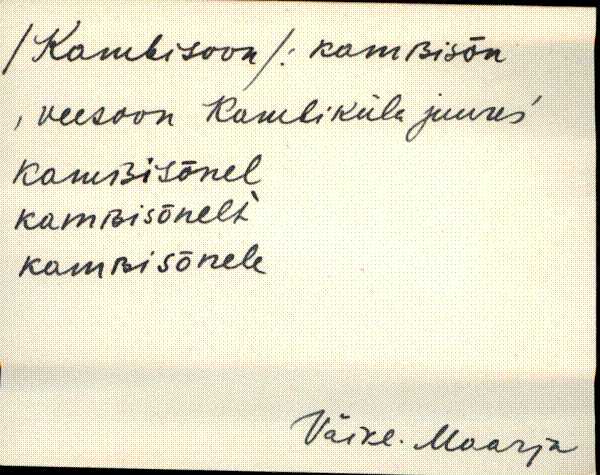 /Kambisoon/: kamʙisōn
‚ veesoon Kambiküla juures'
kamʙisōnel
kamʙisōnelt̀
kamʙisōnele
Väike-Maarja